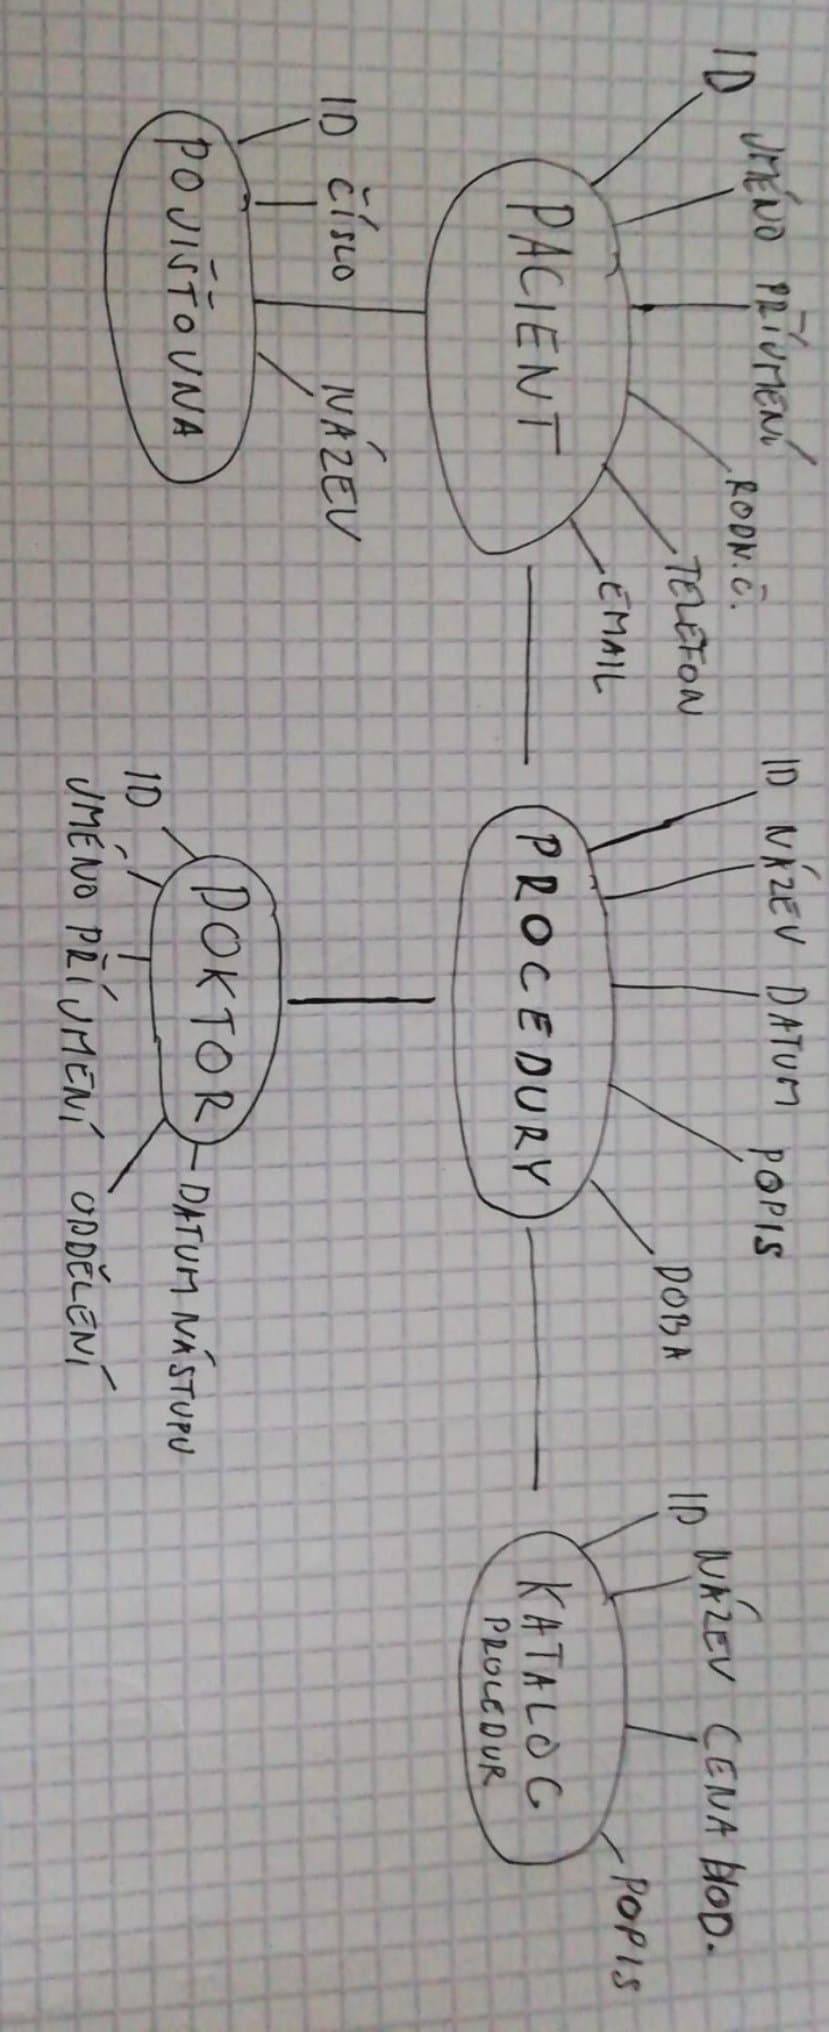 ID JMÉNO PŘÍJMENÍ
RODN.Č.
TELEFON
EMAIL
PACIENT
ID NÁZEV DATUM POPIS
DOBA
PROCEDURY
ID NÁZEV CENA HOD.
POPIS
KATALOG
PROCEDUR
ID ČÍSLO NÁZEV
POJIŠŤOVNA
DOKTOR
DATUM NÁSTUPU
ID
JMÉNO PŘÍJMENÍ ODDĚLENÍ